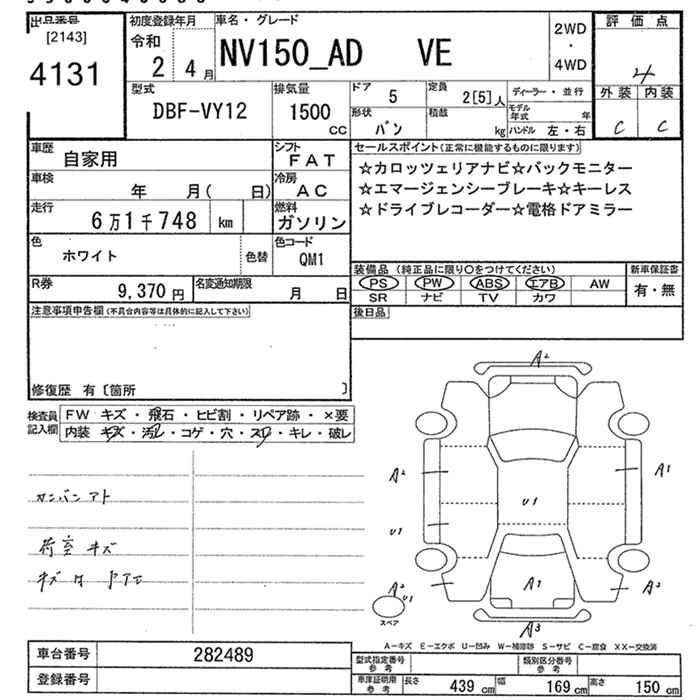 出品番号
[2143]
4131
初度登録年月
令和
2 4月
車名・グレード
NV150_AD VE
2WD
・
4WD
評価点
4
外装 内装
C C
型式
DBF-VY12
排気量
1500
CC
ドア
5
定員
2[5]人
形状
バン
積載
kg
ディーラー・並行
モデル年式 年
ハンドル 左・右
車歴
自家用
シフト
FAT
車検
年 月( 日)
冷房
AC
走行
6万1千748 km
燃料
ガソリン
色
ホワイト
色替
色コード
QM1
R券
9,370円
名変通知期限
月 日
セールスポイント(正常に機能するものに限ります)
☆カロッツェリアナビ☆バックモニター
☆エマージェンシーブレーキ☆キーレス
☆ドライブレコーダー☆電格ドアミラー
装備品 (純正品に限り○をつけてください)
PS PW ABS エアB AW
SR ナビ TV カワ
新車保証書
有・無
後日品
注意事項申告欄(不具合内容等は具体的に記入して下さい)
修復歴 有〔箇所 〕
検査員記入欄
FW キズ・飛石・ヒビ割・リペア跡・×要
内装 キズ・汚レ・コゲ・穴・スレ・キレ・破レ
カンバンアト
荷室キズ
A2
A2
A1
U1
U1
A2
U1
A1
A2
スペア
A3
A-キズ E-エクボ U-凹み W-補修跡 S-サビ C-腐食 XX-交換済
車台番号 282489
登録番号
型式指定番号 参考
類別区分番号 参考
車庫証明用 参考
長さ 439 cm 幅 169 cm 高さ 150 cm